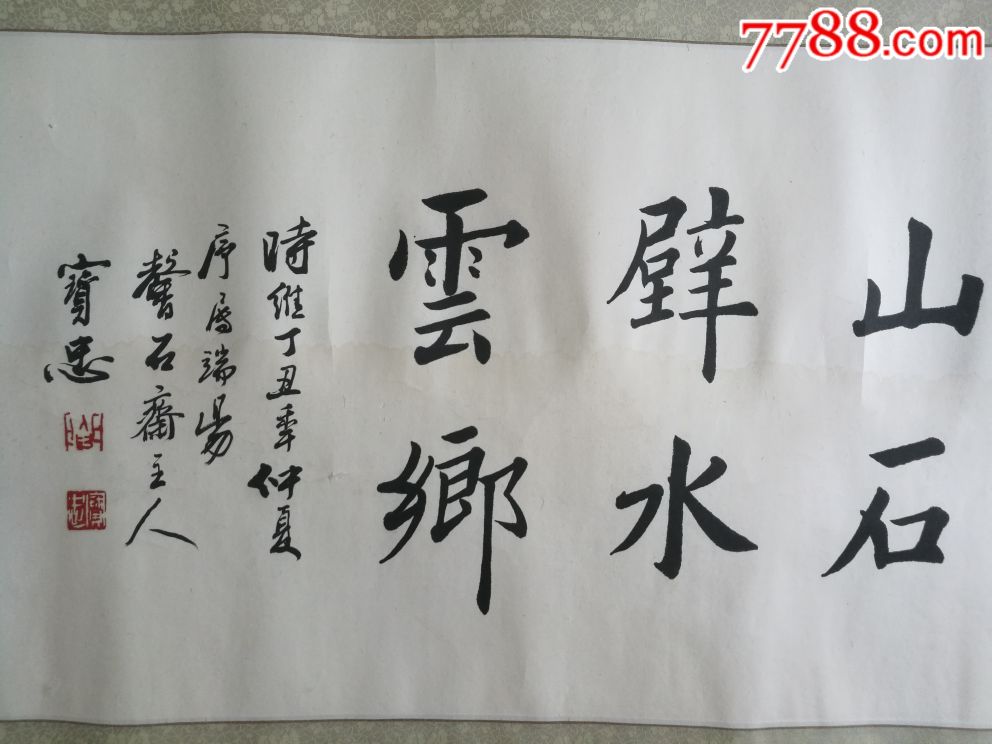 7788.com
山石
壁水
雲鄉
時維丁丑年仲夏
序屬端陽
磬石齋主人
寶忠